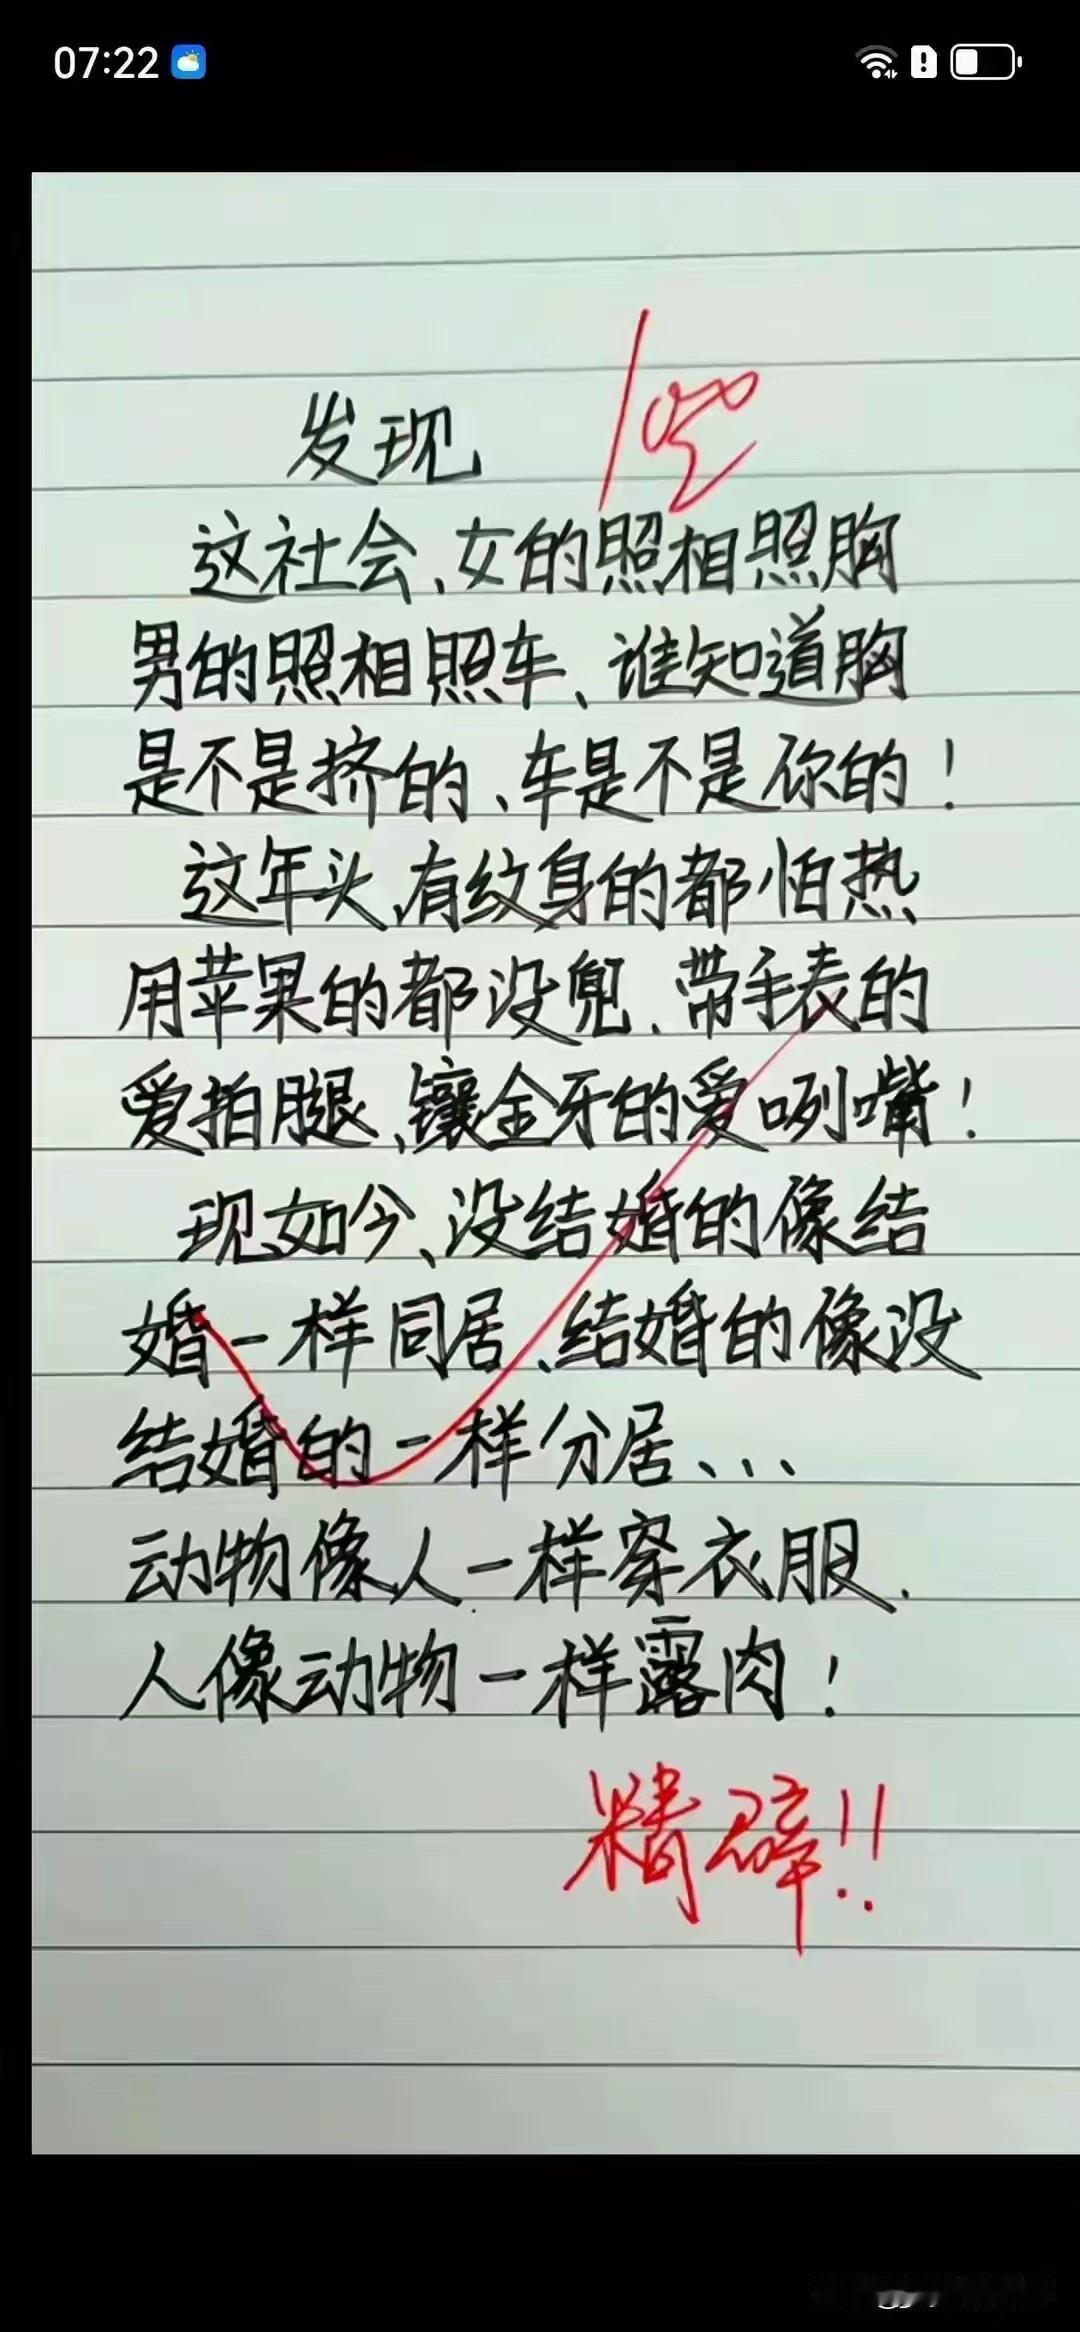 07:22
发现
100
这社会、女的照相照胸
男的照相照车、谁知道胸
是不是挤的、车是不是你的！
这年头、有纹身的都怕热
用苹果的都没兜、带手表的
爱拍腿、镶金牙的爱咧嘴！
现如今、没结婚的像结
婚一样同居、结婚的像没
结婚的一样分居、、、
动物像人一样穿衣服.
人像动物一样露肉！
精辟!!